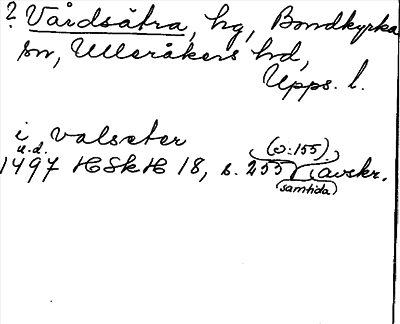 ? Vårdsätra, hg, Bondkyrka
sn, Ulleråkers hd,
Upps. l.
i valseter
u.d. (o: 155)
1497 HSkH 18, s. 255 avskr.
(samtida)